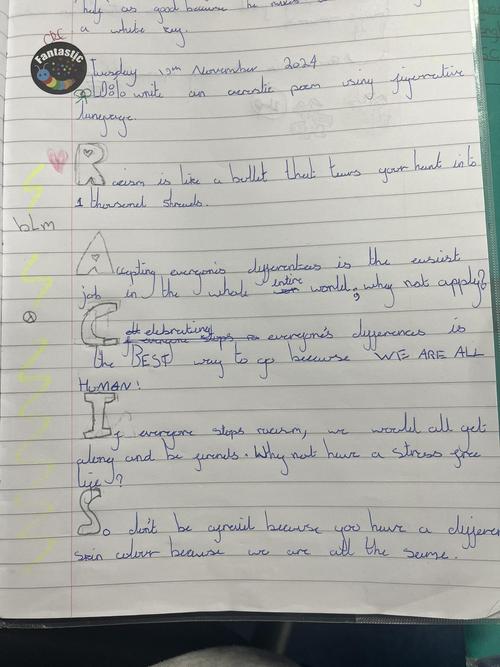 help" as good because he makes
a white key.
CRE
Fantastic
Tuesday 12th November 2024
LO: To write an acrostic poem using figurative
language.
Racism is like a bullet that tears your heart into
1 thousand shreds.
blm
Accepting everyone's differences is the easiest
job in the whole entire world, why not apply?
Celebrating everyone's differences is
the BEST way to go because WE ARE ALL
HUMAN!
If everyone stops racism, we would all get
along and be friends. Why not have a stress free
life?
So don't be afraid because you have a differen
skin colour because we are all the same.